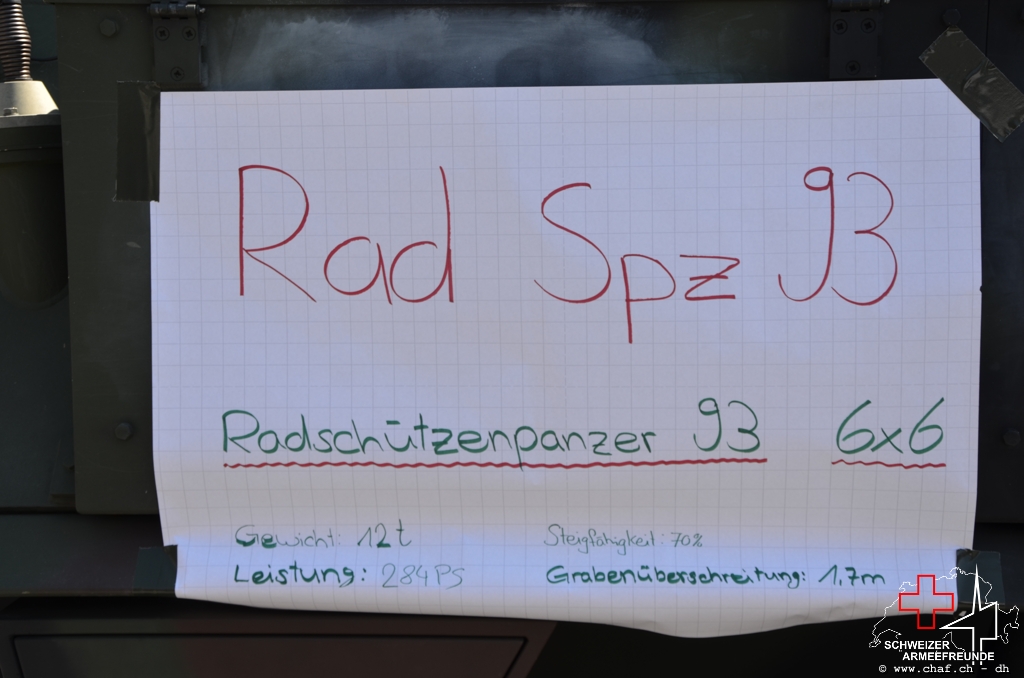 Rad Spz 93
Radschützenpanzer 93 6x6
Gewicht: 12t Steigfähigkeit: 70%
Leistung: 284PS Grabenüberschreitung: 1,7m
SCHWEIZER
ARMEEFREUNDE
© www.chaf.ch - dh